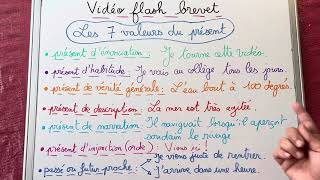 Vidéo flash brevet
Les 7 valeurs du présent
• présent d'énonciation : Je tourne cette vidéo.
• présent d'habitude : Je vais au collège tous les jours.
• présent de vérité générale : L'eau bout à 100 degrés.
• présent de description : La mer est très agitée.
• présent de narration : Il naviguait lorsqu'il aperçoit
soudain le rivage
• présent d'injonction (ordre) : Viens ici !
• passé ou futur proche : → Je viens juste de rentrer.
→ J'arrive dans une heure.